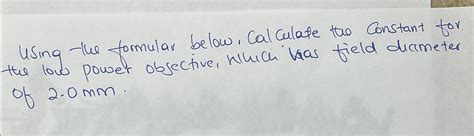 Using the formular below, Calculate the Constant for
the low power objective, which has field diameter
of 2.0mm.